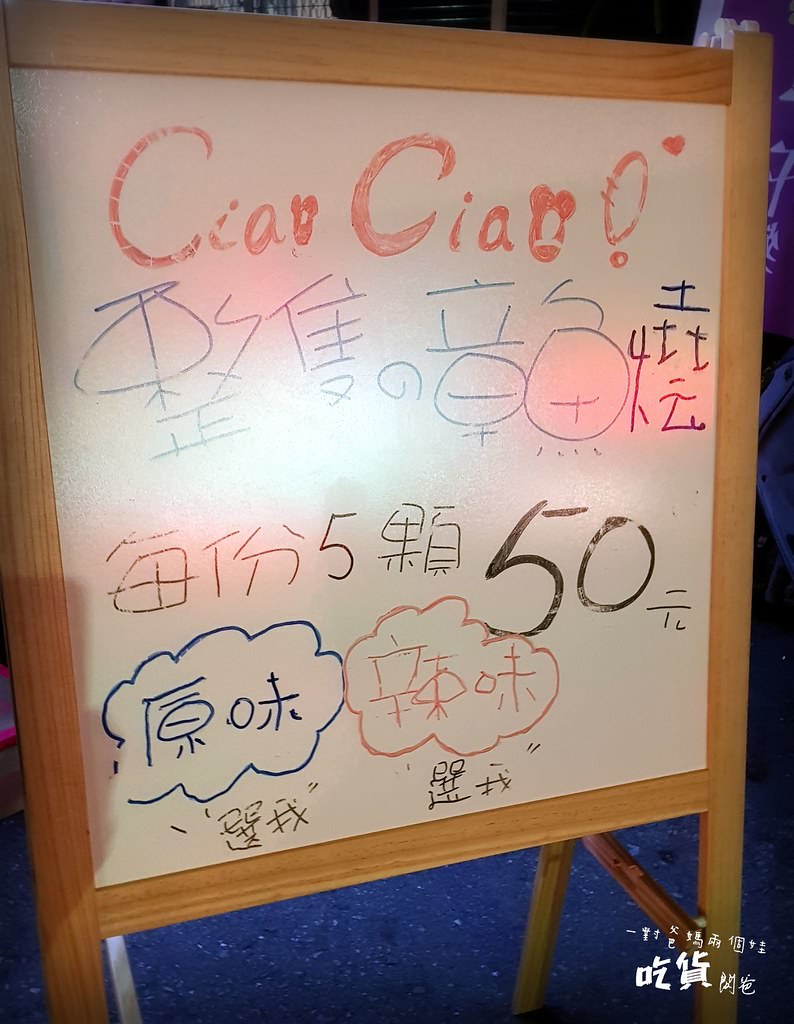 Ciao Ciao!
整隻の章魚燒
每份5顆50元
原味 辣味
"選我" "選我"
一對爸媽兩個娃
吃貨閃爸